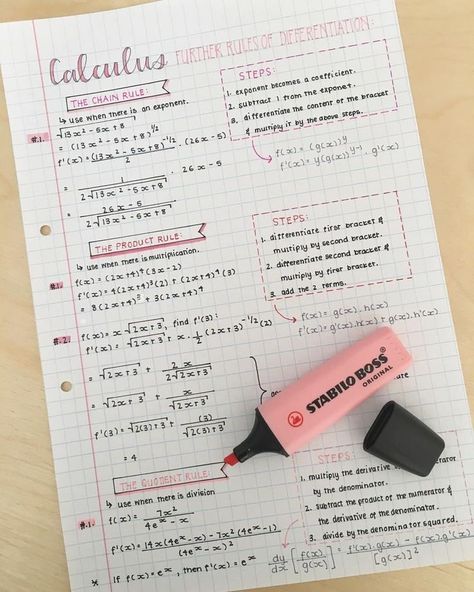 Calculus FURTHER RULES OF DIFFERENTIATION:
THE CHAIN RULE:
↳ use when there is an exponent.
#1. √13x² - 5x + 8
= (13x² - 5x + 8)^1/2
f'(x) = (13x² - 5x + 8)^-1/2 / 2 · (26x - 5)
= 1 / 2√13x² - 5x + 8 · 26x - 5
= 26x - 5 / 2√13x² - 5x + 8
STEPS:
1. exponent becomes a coefficient.
2. subtract 1 from the exponent.
3. differentiate the content of the bracket
& multiply it by the above steps.
f(x) = (g(x))^y
f'(x) = y(g(x))^y-1 · g'(x)
THE PRODUCT RULE:
↳ use when there is multiplication.
#1. f(x) = (2x+4)⁴(3x - 2)
f'(x) = 4(2x+4)³(2) + (2x+4)⁴(3)
= 8(2x+4)³ + 3(2x+4)⁴
STEPS:
1. differentiate first bracket &
multiply by second bracket.
2. differentiate second bracket &
multiply by first bracket.
3. add the 2 terms.
f(x) = g(x).h(x)
f'(x) = g'(x).h(x) + g(x).h'(x)
#2. f(x) = x√2x+3, find f'(3):
f'(x) = √2x+3 + x · 1/2 (2x+3)^-1/2 (2)
= √2x+3 + 2x / 2√2x+3
= √2x+3 + x / √2x+3
f'(3) = √2(3)+3 + (3) / √2(3)+3
= 4
STABILO BOSS
ORIGINAL
THE QUOTIENT RULE:
↳ use when there is division
#1. f(x) = 7x² / 4eˣ - x
f'(x) = 14x(4eˣ - x) - 7x²(4eˣ - 1) / (4eˣ - x)²
* If f(x) = eˣ, then f'(x) = eˣ
STEPS:
1. multiply the derivative
by the denominator.
2. subtract the product of the numerator &
the derivative of the denominator.
3. divide by the denominator squared.
dy/dx [f(x)/g(x)] = f'(x).g(x) - f(x).g'(x) / [g(x)]²